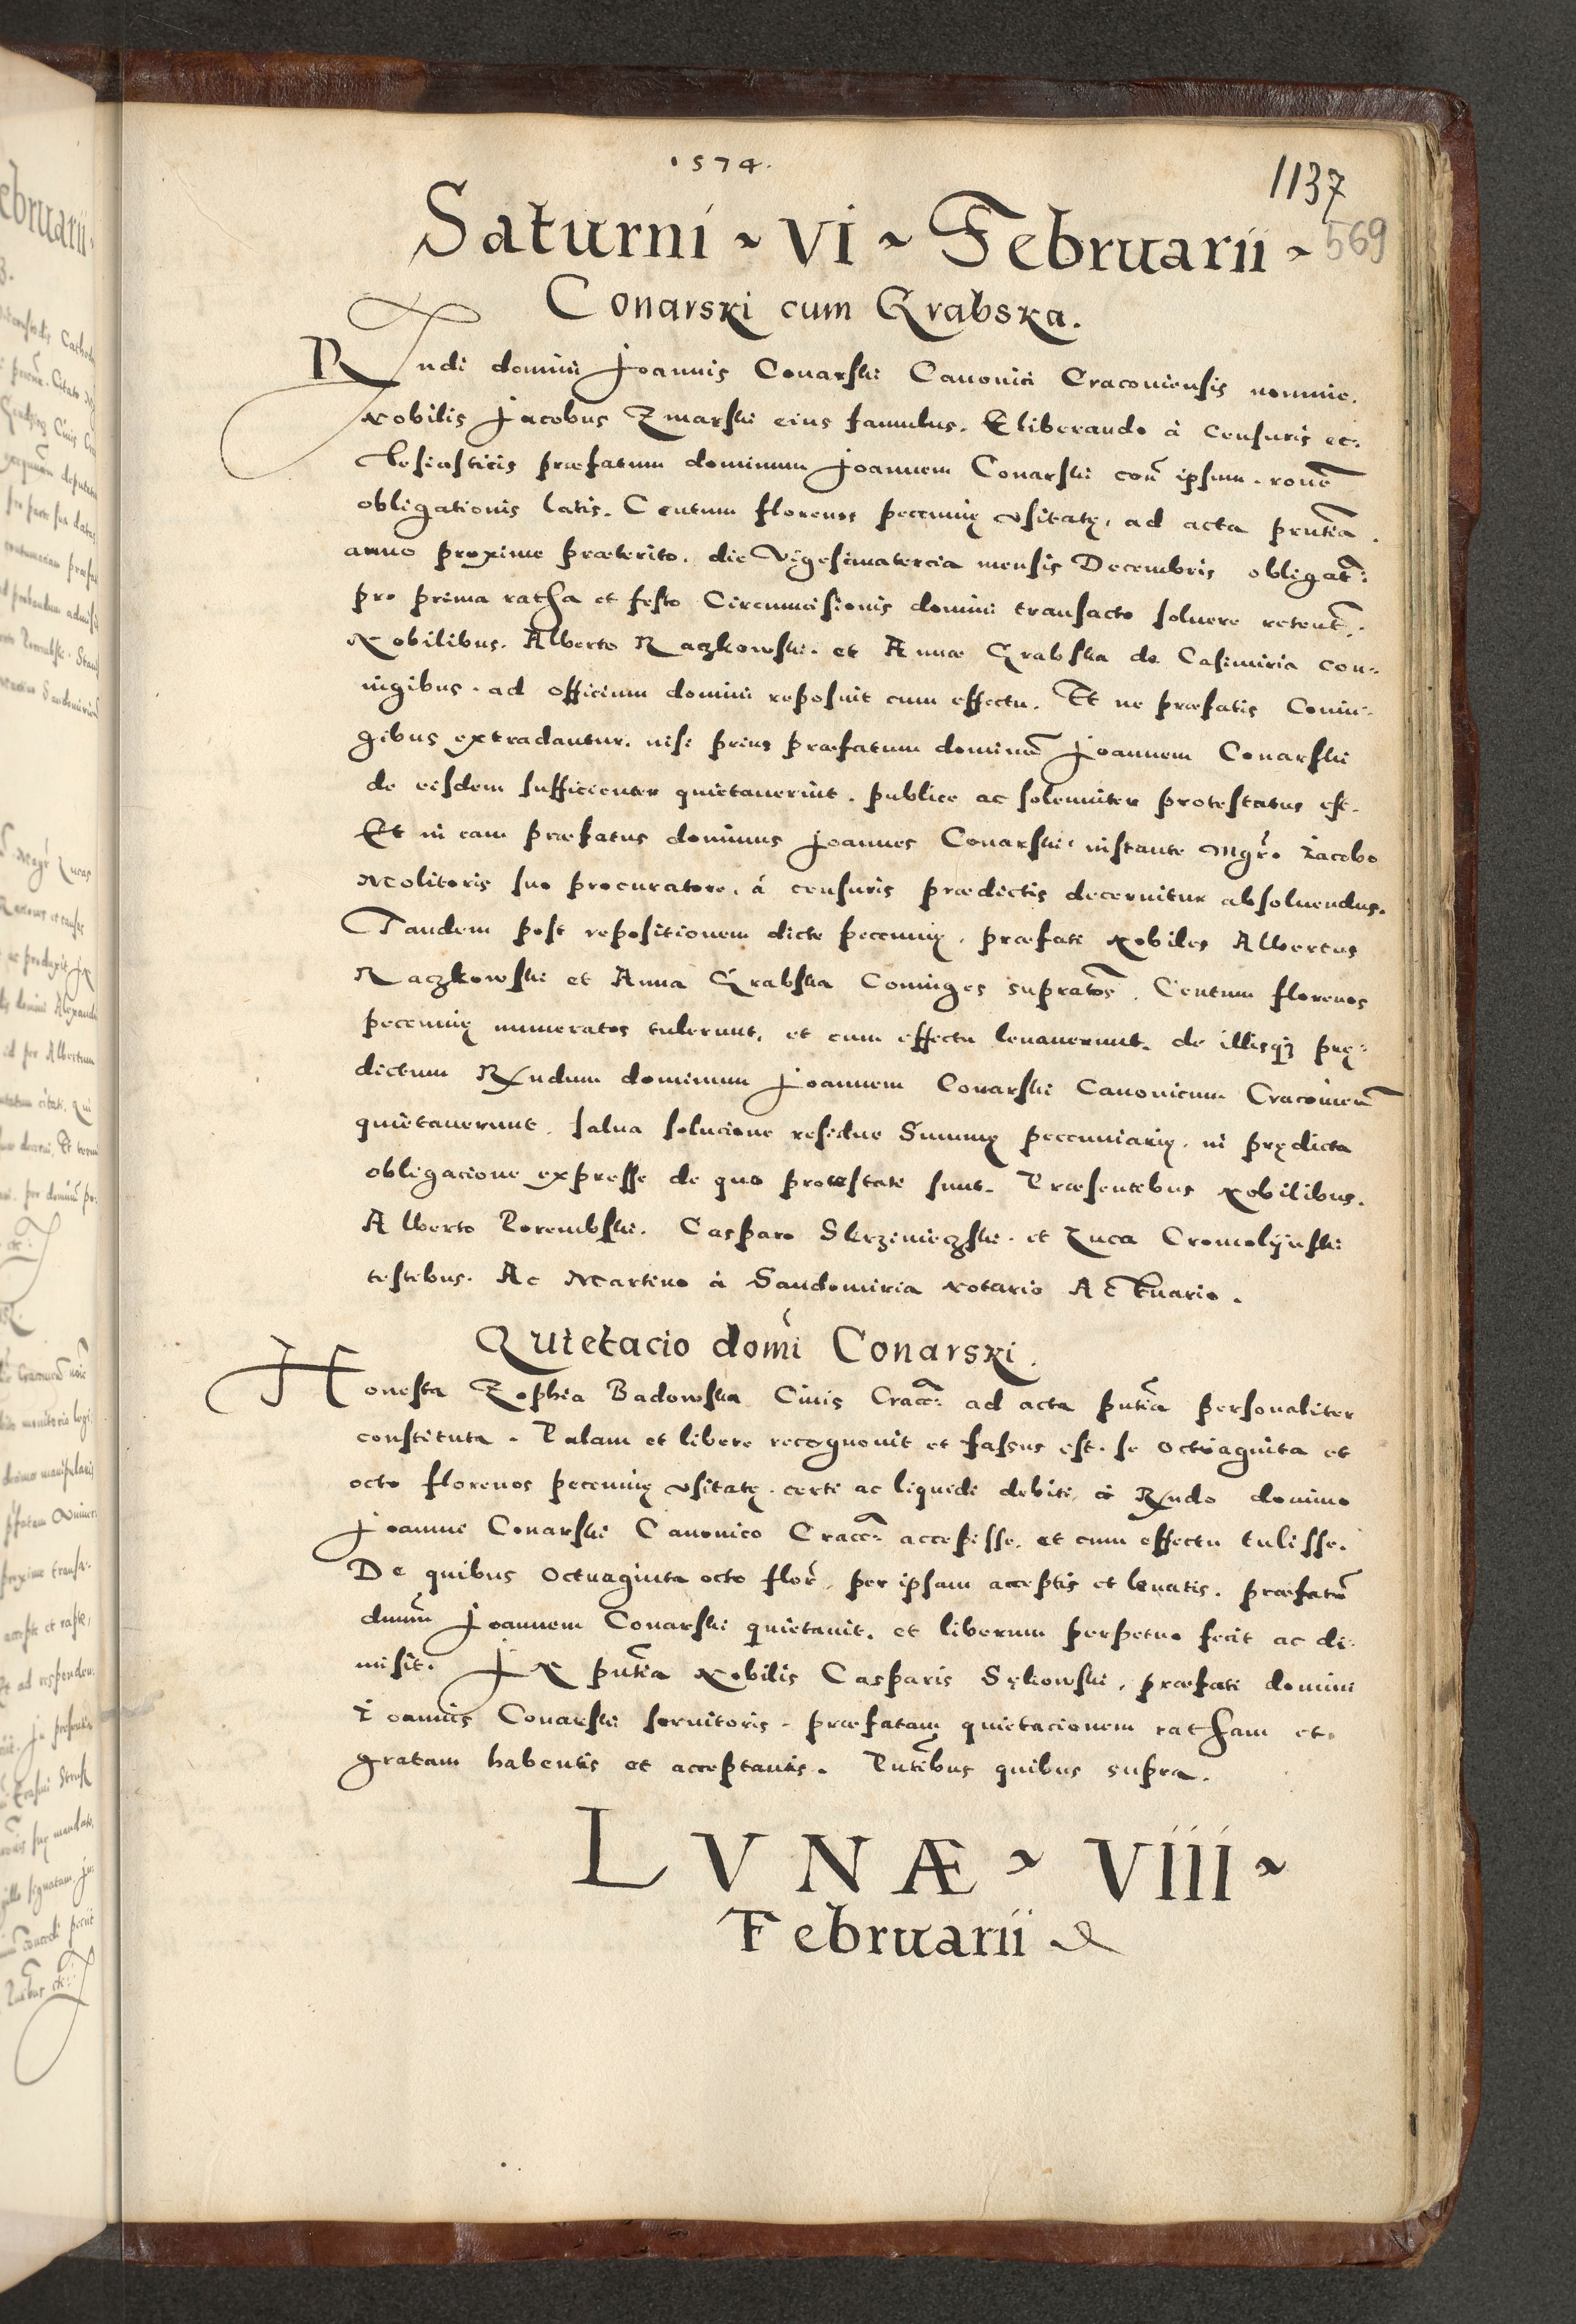 1574.
1137
Saturni ~ Vi ~ Februarii ~ 569
Conarski cum Grabska.
Rndi domini Joannis Conarski Canonici Cracoviensis nomine.
Nobilis Jacobus Zmarski eius famulus. Eliberando à censuris ec=
clesiasticis præfatum dominum Joannem Conarski con̄ ipsum. ronē
obligationis latis. Centum florenos pecunię usitatę, ad acta pr̄ntia.
anno proxime præterito. die Vigesimatercia mensis Decembris obligat̄:
pro prima ratha et festo Circumcisionis domini transacto soluere retent̄:
Nobilibus. Alberto Raczkowski. et Annæ Grabska de Casimiria con=
iugibus. ad officium domini reposuit cum effectu. Et ne præfatis Coniu=
gibus extradantur. nisi prius præfatum dominū Joannem Conarski
de eisdem sufficienter quietauerint. publice ac solenniter protestatus est.
Et in eam præfatus dominus Joannes Conarski: instante Mgr̄o Iacobo
Molitoris suo procuratore, à censuris prædictis decernitur absoluendus.
Tandem post repositionem dicte pecunię, præfati Nobiles Albertus
Raczkowski et Anna Grabska Coniuges supratos̄. Centum florenos
pecunię numeratos tulerunt, et cum effectu leuauerunt. de illisq; prę=
dictum Rndum dominum Joannem Conarski Canonicum Cracouien̄
quietauerunt. salua solucione residue Summę peccuniarię. in prędicta
obligacione expresse de quo protestati sunt. Præsentibus Nobilibus.
Alberto Porembski. Casparo Skrzenieczski. et Luca Cromolynski
testibus. Ac Martino à Sandomiria Notario Actuario.
Quietacio domi Conarski.
Honesta Zophia Badowska Ciuis Cracc: ad acta pn̄tia personaliter
constituta. Palam et libere recognouit et fassus est. se octuaginta et
octo florenos pecunię usitatę. certi ac liquidi debiti, à Rndo domino
Joanne Conarski Canonico Cracc: accepisse, et cum effectu tulisse.
De quibus octuaginta octo flor̄. per ipsam acceptis et leuatis. præfatū
dnum̄ Joannem Conarski quietauit. et liberum perpetuo fecit ac di=
misit. In pn̄tia Nobilis Casparis Sękowski, præfati domini
Ioannis Conarski seruitoris. præfatam quietacionem ratham et.
gratam habentis et acceptantis. Pn̄tibus quibus supra.
LVNÆ ~ Viii ~
Februarii